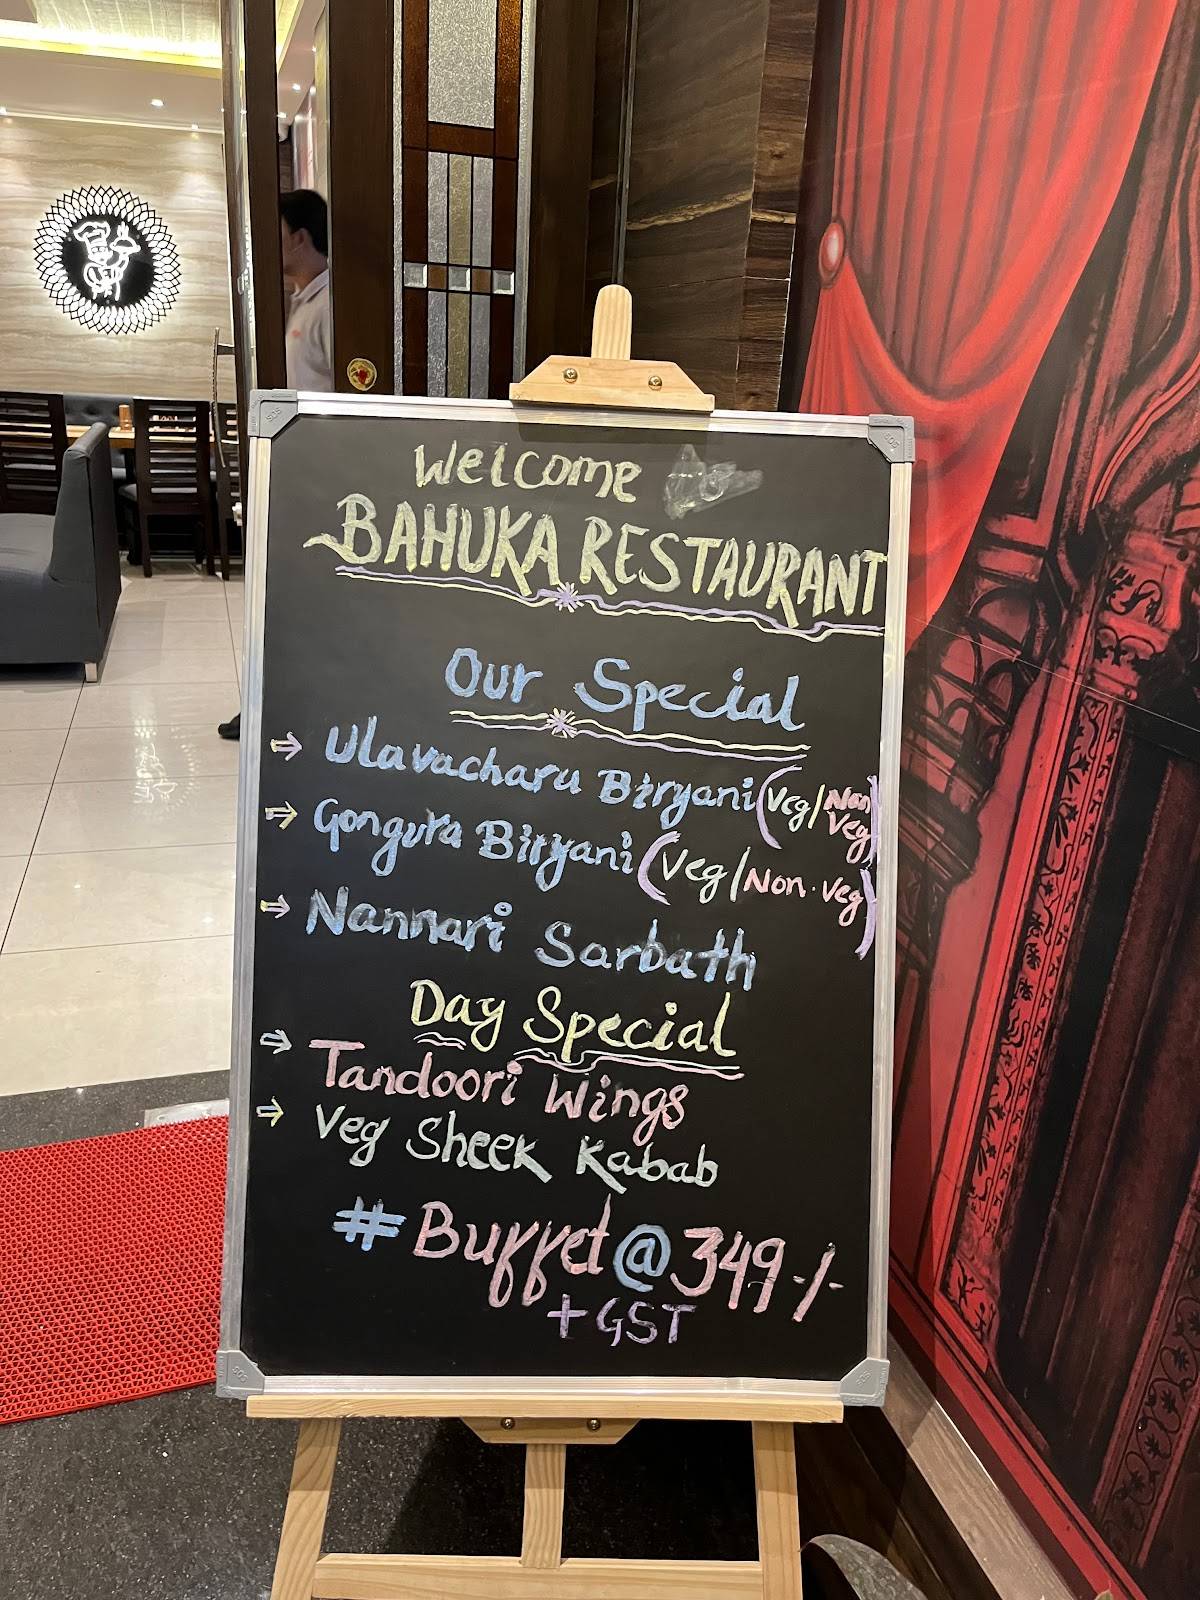 Welcome to
BAHUKA RESTAURANT
Our Special
⇒ Ulavacharu Biryani (Veg/Non Veg)
⇒ Gongura Biryani (Veg/Non.Veg)
⇒ Nannari Sarbath
Day Special
⇒ Tandoori Wings
⇒ Veg Sheek Kabab
# Buffet @ 349-/-
+ GST